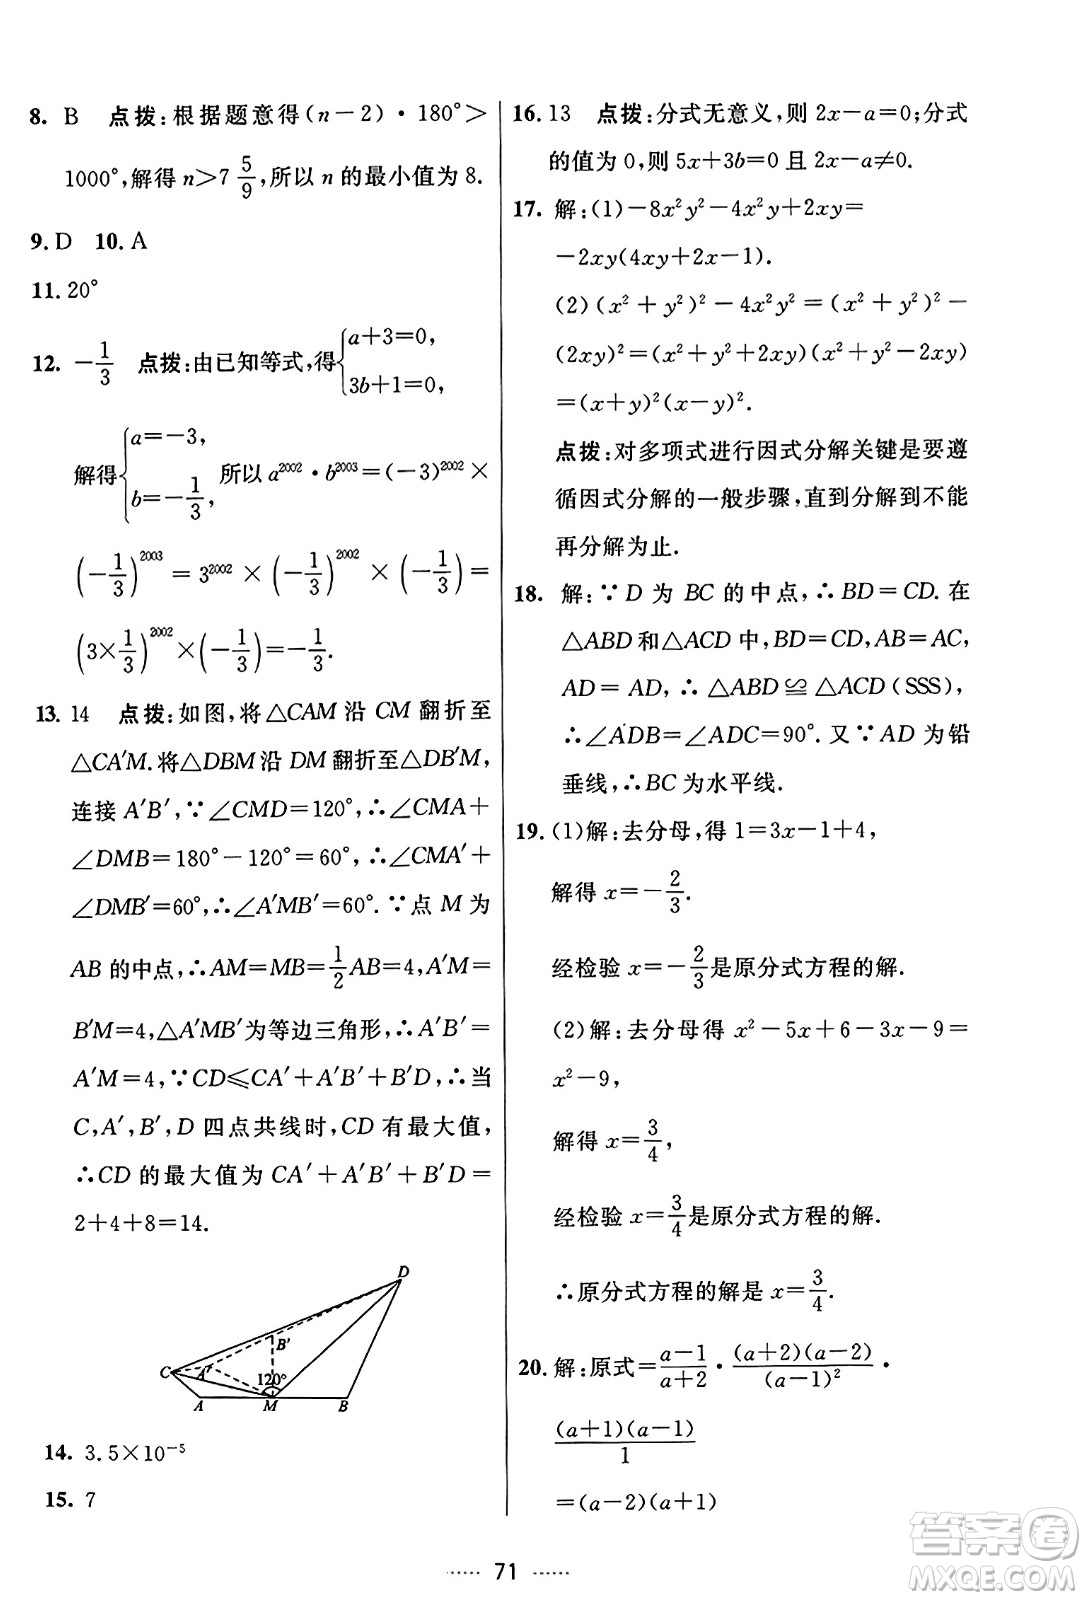 8. B 点拨:根据题意得(n－2)·180°＞
1000°,解得 n＞7 5/9,所以 n 的最小值为 8.
9. D 10. A
11. 20°
12. －1/3 点拨:由已知等式,得{a＋3＝0,
3b＋1＝0,
解得{a＝－3,
b＝－1/3, 所以 a²⁰⁰²·b²⁰⁰³＝(－3)²⁰⁰²×
(－1/3)²⁰⁰³＝3²⁰⁰²×(－1/3)²⁰⁰²×(－1/3)＝
(3×1/3)²⁰⁰²×(－1/3)＝－1/3.
13. 14 点拨:如图,将△CAM 沿 CM 翻折至
△CA′M.将△DBM 沿 DM 翻折至△DB′M,
连接 A′B′,∵∠CMD＝120°,∴∠CMA＋
∠DMB＝180°－120°＝60°,∴∠CMA′＋
∠DMB′＝60°,∴∠A′MB′＝60°.∵点 M 为
AB 的中点,∴AM＝MB＝1/2AB＝4,A′M＝
B′M＝4,△A′MB′为等边三角形,∴A′B′＝
A′M＝4,∵CD≤CA′＋A′B′＋B′D,∴当
C,A′,B′,D 四点共线时,CD 有最大值,
∴CD 的最大值为 CA′＋A′B′＋B′D＝
2＋4＋8＝14.
D
B′
C
A′
120°
A M B
14. 3.5×10⁻⁵
15. 7
16. 13 点拨:分式无意义,则 2x－a＝0;分式
的值为 0,则 5x＋3b＝0 且 2x－a≠0.
17. 解:(1)－8x²y²－4x²y＋2xy＝
－2xy(4xy＋2x－1).
(2)(x²＋y²)²－4x²y²＝(x²＋y²)²－
(2xy)²＝(x²＋y²＋2xy)(x²＋y²－2xy)
＝(x＋y)²(x－y)².
点拨:对多项式进行因式分解关键是要遵
循因式分解的一般步骤,直到分解到不能
再分解为止.
18. 解:∵D 为 BC 的中点,∴BD＝CD.在
△ABD 和△ACD 中,BD＝CD,AB＝AC,
AD＝AD,∴△ABD≌△ACD(SSS),
∴∠ADB＝∠ADC＝90°.又∵AD 为铅
垂线,∴BC 为水平线.
19. (1)解:去分母,得 1＝3x－1＋4,
解得 x＝－2/3.
经检验 x＝－2/3是原分式方程的解.
(2)解:去分母得 x²－5x＋6－3x－9＝
x²－9,
解得 x＝3/4,
经检验 x＝3/4是原分式方程的解.
∴原分式方程的解是 x＝3/4.
20. 解:原式＝(a－1)/(a＋2)·(a＋2)(a－2)/(a－1)²·
(a＋1)(a－1)/1
＝(a－2)(a＋1)
······ 71 ······
答案卷
MXQE.COM